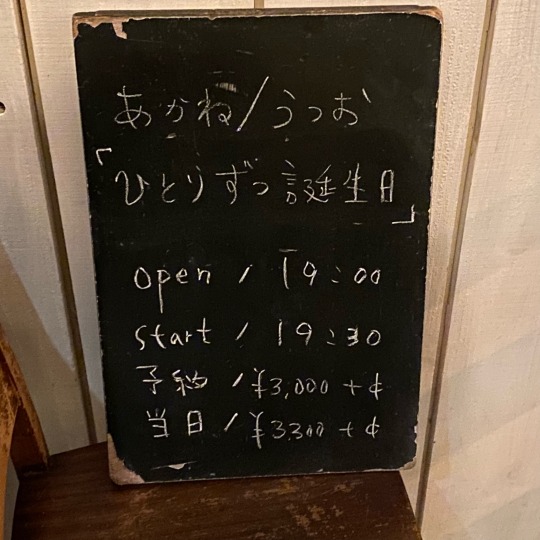 あかね/うつお
「ひとりずつ誕生日」
open / 19:00
start / 19:30
予約 / ¥3,000+¢
当日 / ¥3300+¢